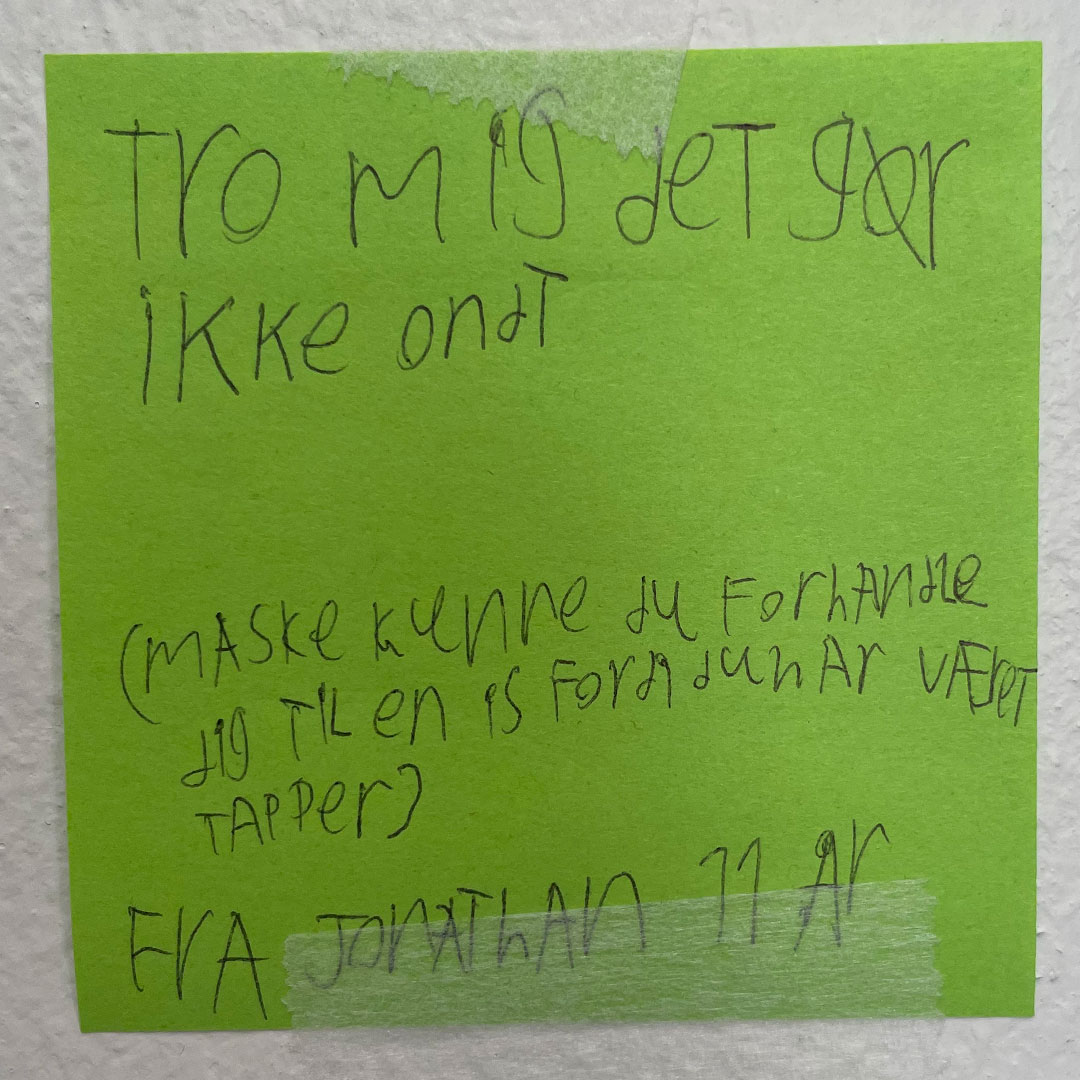 Tro mig det gør
ikke ondt
(måske kunne du Forhandle
dig til en is Fordi du har været
tapper)
Fra Jonathan 11 år